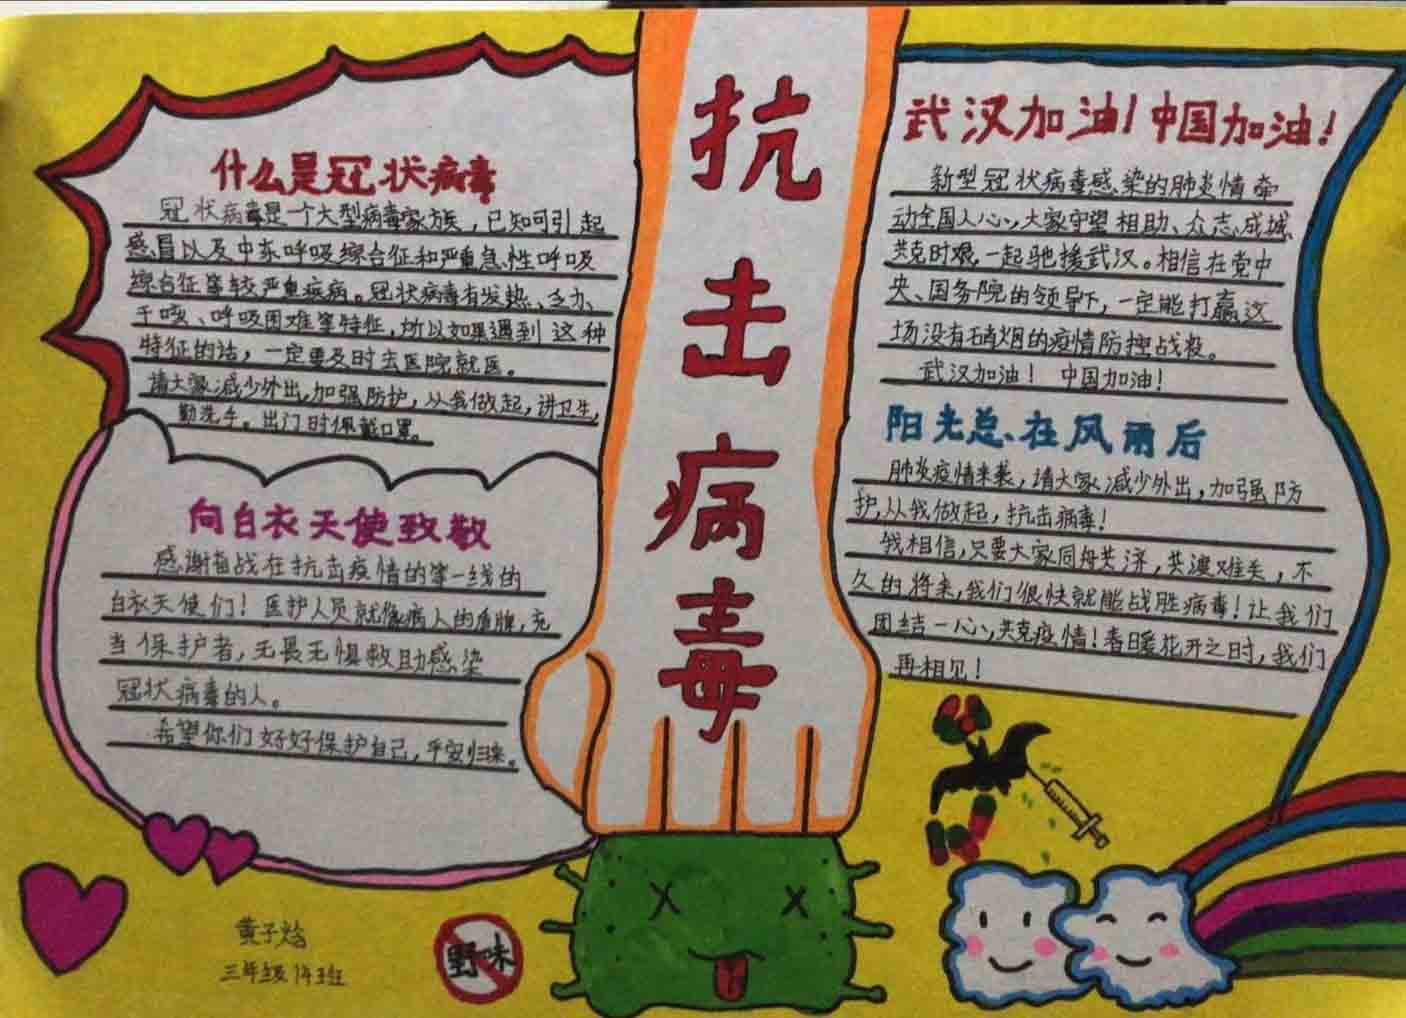 抗击病毒
什么是冠状病毒
冠状病毒是一个大型病毒家族，已知可引起
感冒以及中东呼吸综合征和严重急性呼吸
综合征等较严重疾病。冠状病毒有发热、乏力、
干咳、呼吸困难等特征，所以如果遇到这种
特征的话，一定要及时去医院就医。
请大家减少外出，加强防护，从我做起，讲卫生，
勤洗手。出门时佩戴口罩。
向白衣天使致敬
感谢奋战在抗击疫情的第一线的
白衣天使们！医护人员就像病人的盾牌，充
当保护者，无畏无惧救助感染
冠状病毒的人。
希望你们好好保护自己，平安归来。
武汉加油！中国加油！
新型冠状病毒感染的肺炎情牵
动全国人心，大家守望相助、众志成城、
共克时艰，一起驰援武汉。相信在党中
央、国务院的领导下，一定能打赢这
场没有硝烟的疫情防控战役。
武汉加油！ 中国加油！
阳光总在风雨后
肺炎疫情来袭，请大家减少外出，加强防
护，从我做起，抗击病毒！
我相信，只要大家同舟共济，共渡难关，不
久的将来，我们很快就能战胜病毒！让我们
团结一心，共克疫情！春日暖花开之时，我们
再相见！
黄子焓
三年级14班
野味